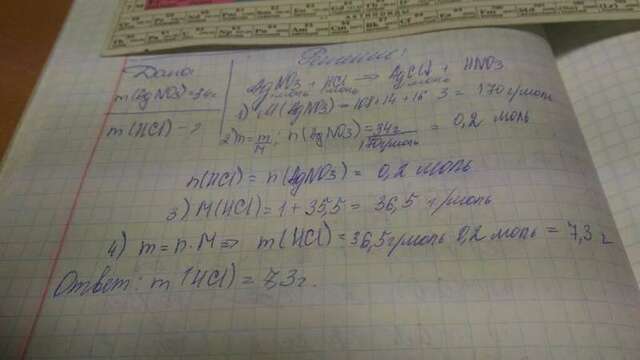 Дано:
m(AgNO3)=34г
m(HCl) - ?
Решение:
AgNO3 + HCl → AgCl↓ + HNO3
1моль 1моль 1моль
1) M(AgNO3) = 108+14+16·3 = 170 г/моль
2) n=m/M; n(AgNO3)=34г/170г/моль = 0,2 моль
n(HCl) = n(AgNO3) = 0,2 моль
3) M(HCl) = 1+35,5 = 36,5 г/моль
4) m=n·M ⇒ m(HCl) = 36,5г/моль·0,2 моль = 7,3 г
Ответ: m(HCl) = 7,3г.